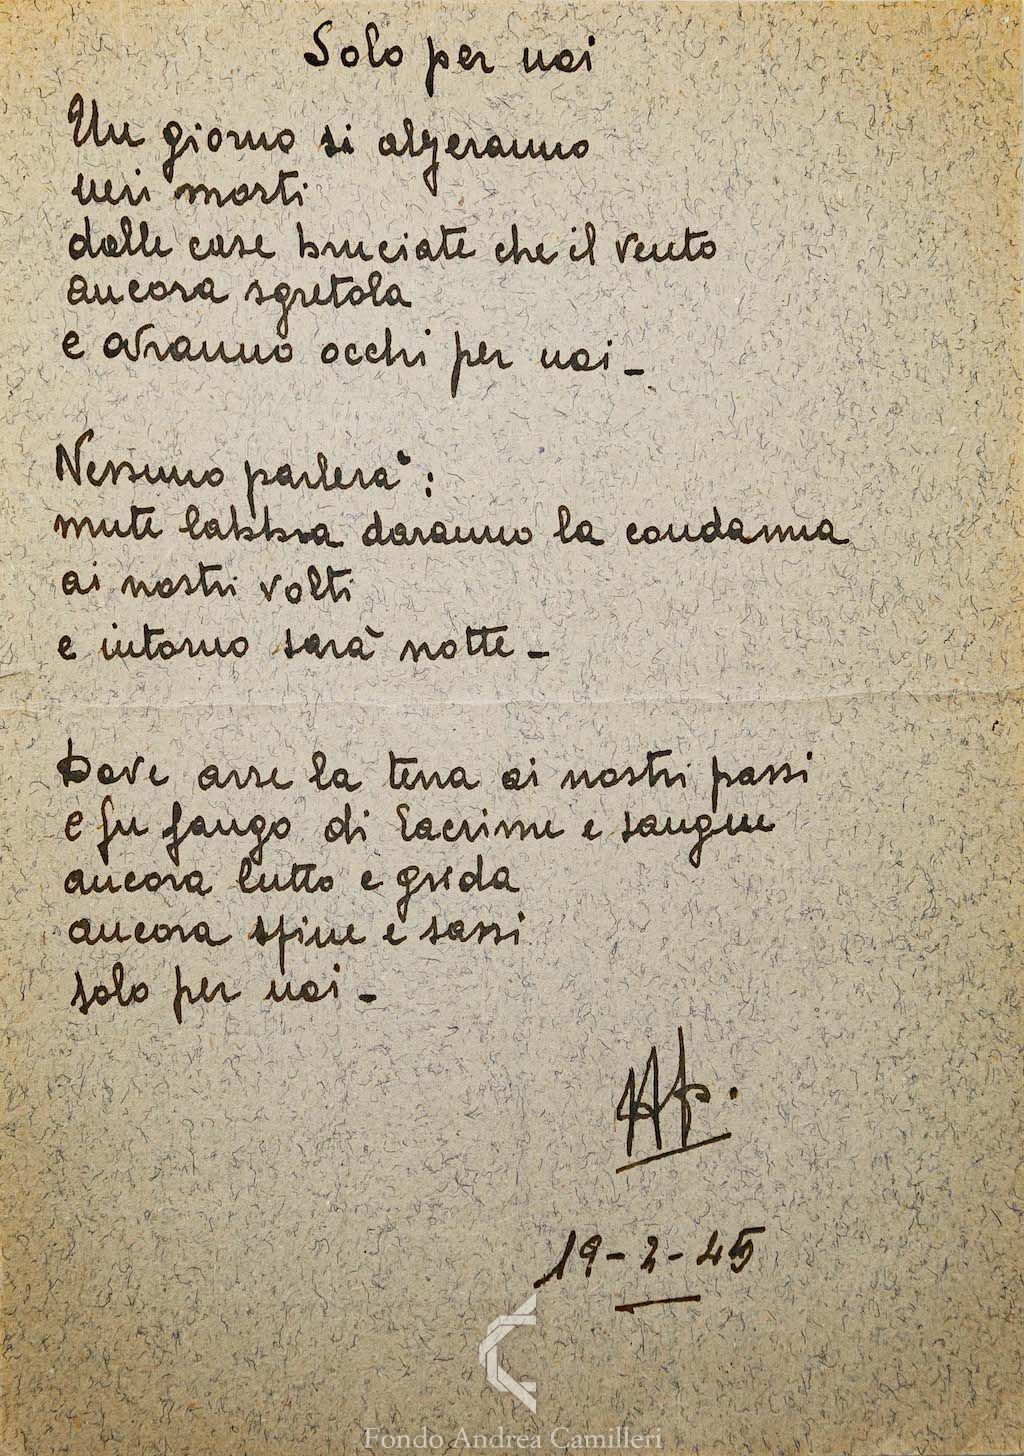 Solo per noi
Un giorno si alzeranno
neri morti
dalle case bruciate che il vento
ancora sgretola
e avranno occhi per noi -
Nessuno parlerà :
mute labbra daranno la condanna
ai nostri volti
e intorno sarà notte -
Dove arse la terra ai nostri passi
e fu fango di lacrime e sangue
ancora lutto e grida
ancora spine e sassi
solo per noi -
19-2-45
Fondo Andrea Camilleri